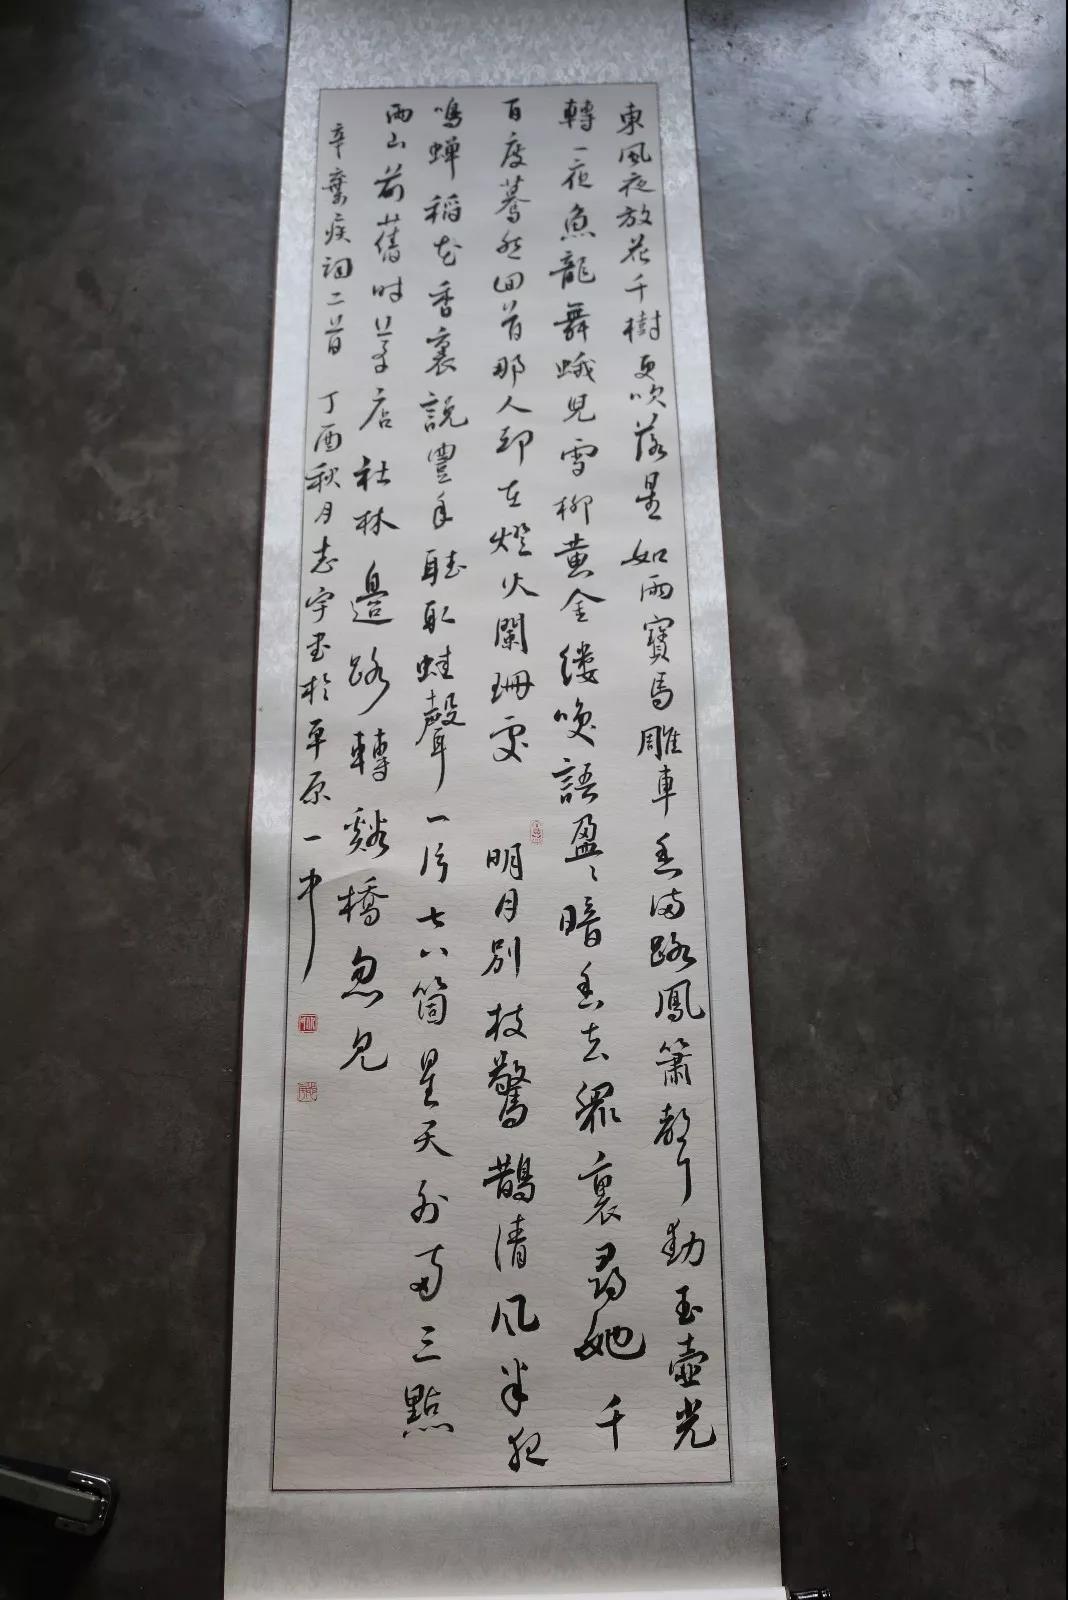 東風夜放花千樹更吹落星如雨寶馬雕車香滿路鳳簫聲動玉壺光
轉一夜魚龍舞蛾兒雪柳黃金縷咲語盈々暗香去眾裏尋她千
百度驀然回首那人卻在燈火闌珊處 明月別枝驚鵲清风半夜
鳴蟬稻花香裏說豐年聽取蛙聲一片七八箇星天外兩三點
雨山前舊時茅店社林邊路轉谿橋忽見
辛棄疾詞二首 丁酉秋月志宇書於平原一中